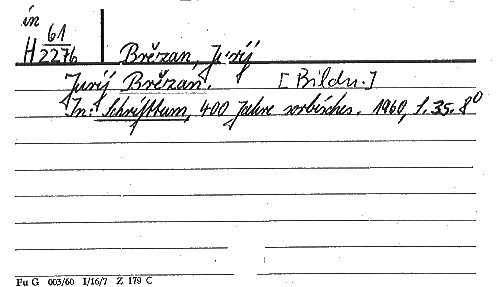 in
H 61/2276 Brězan, Jurij
Jurij Brězan. [Bildn.]
In: Schrifttum, 400 Jahre sorbisches. 1960, S. 35. 8°
Fu G 003/60 I/16/7 Z 179 C